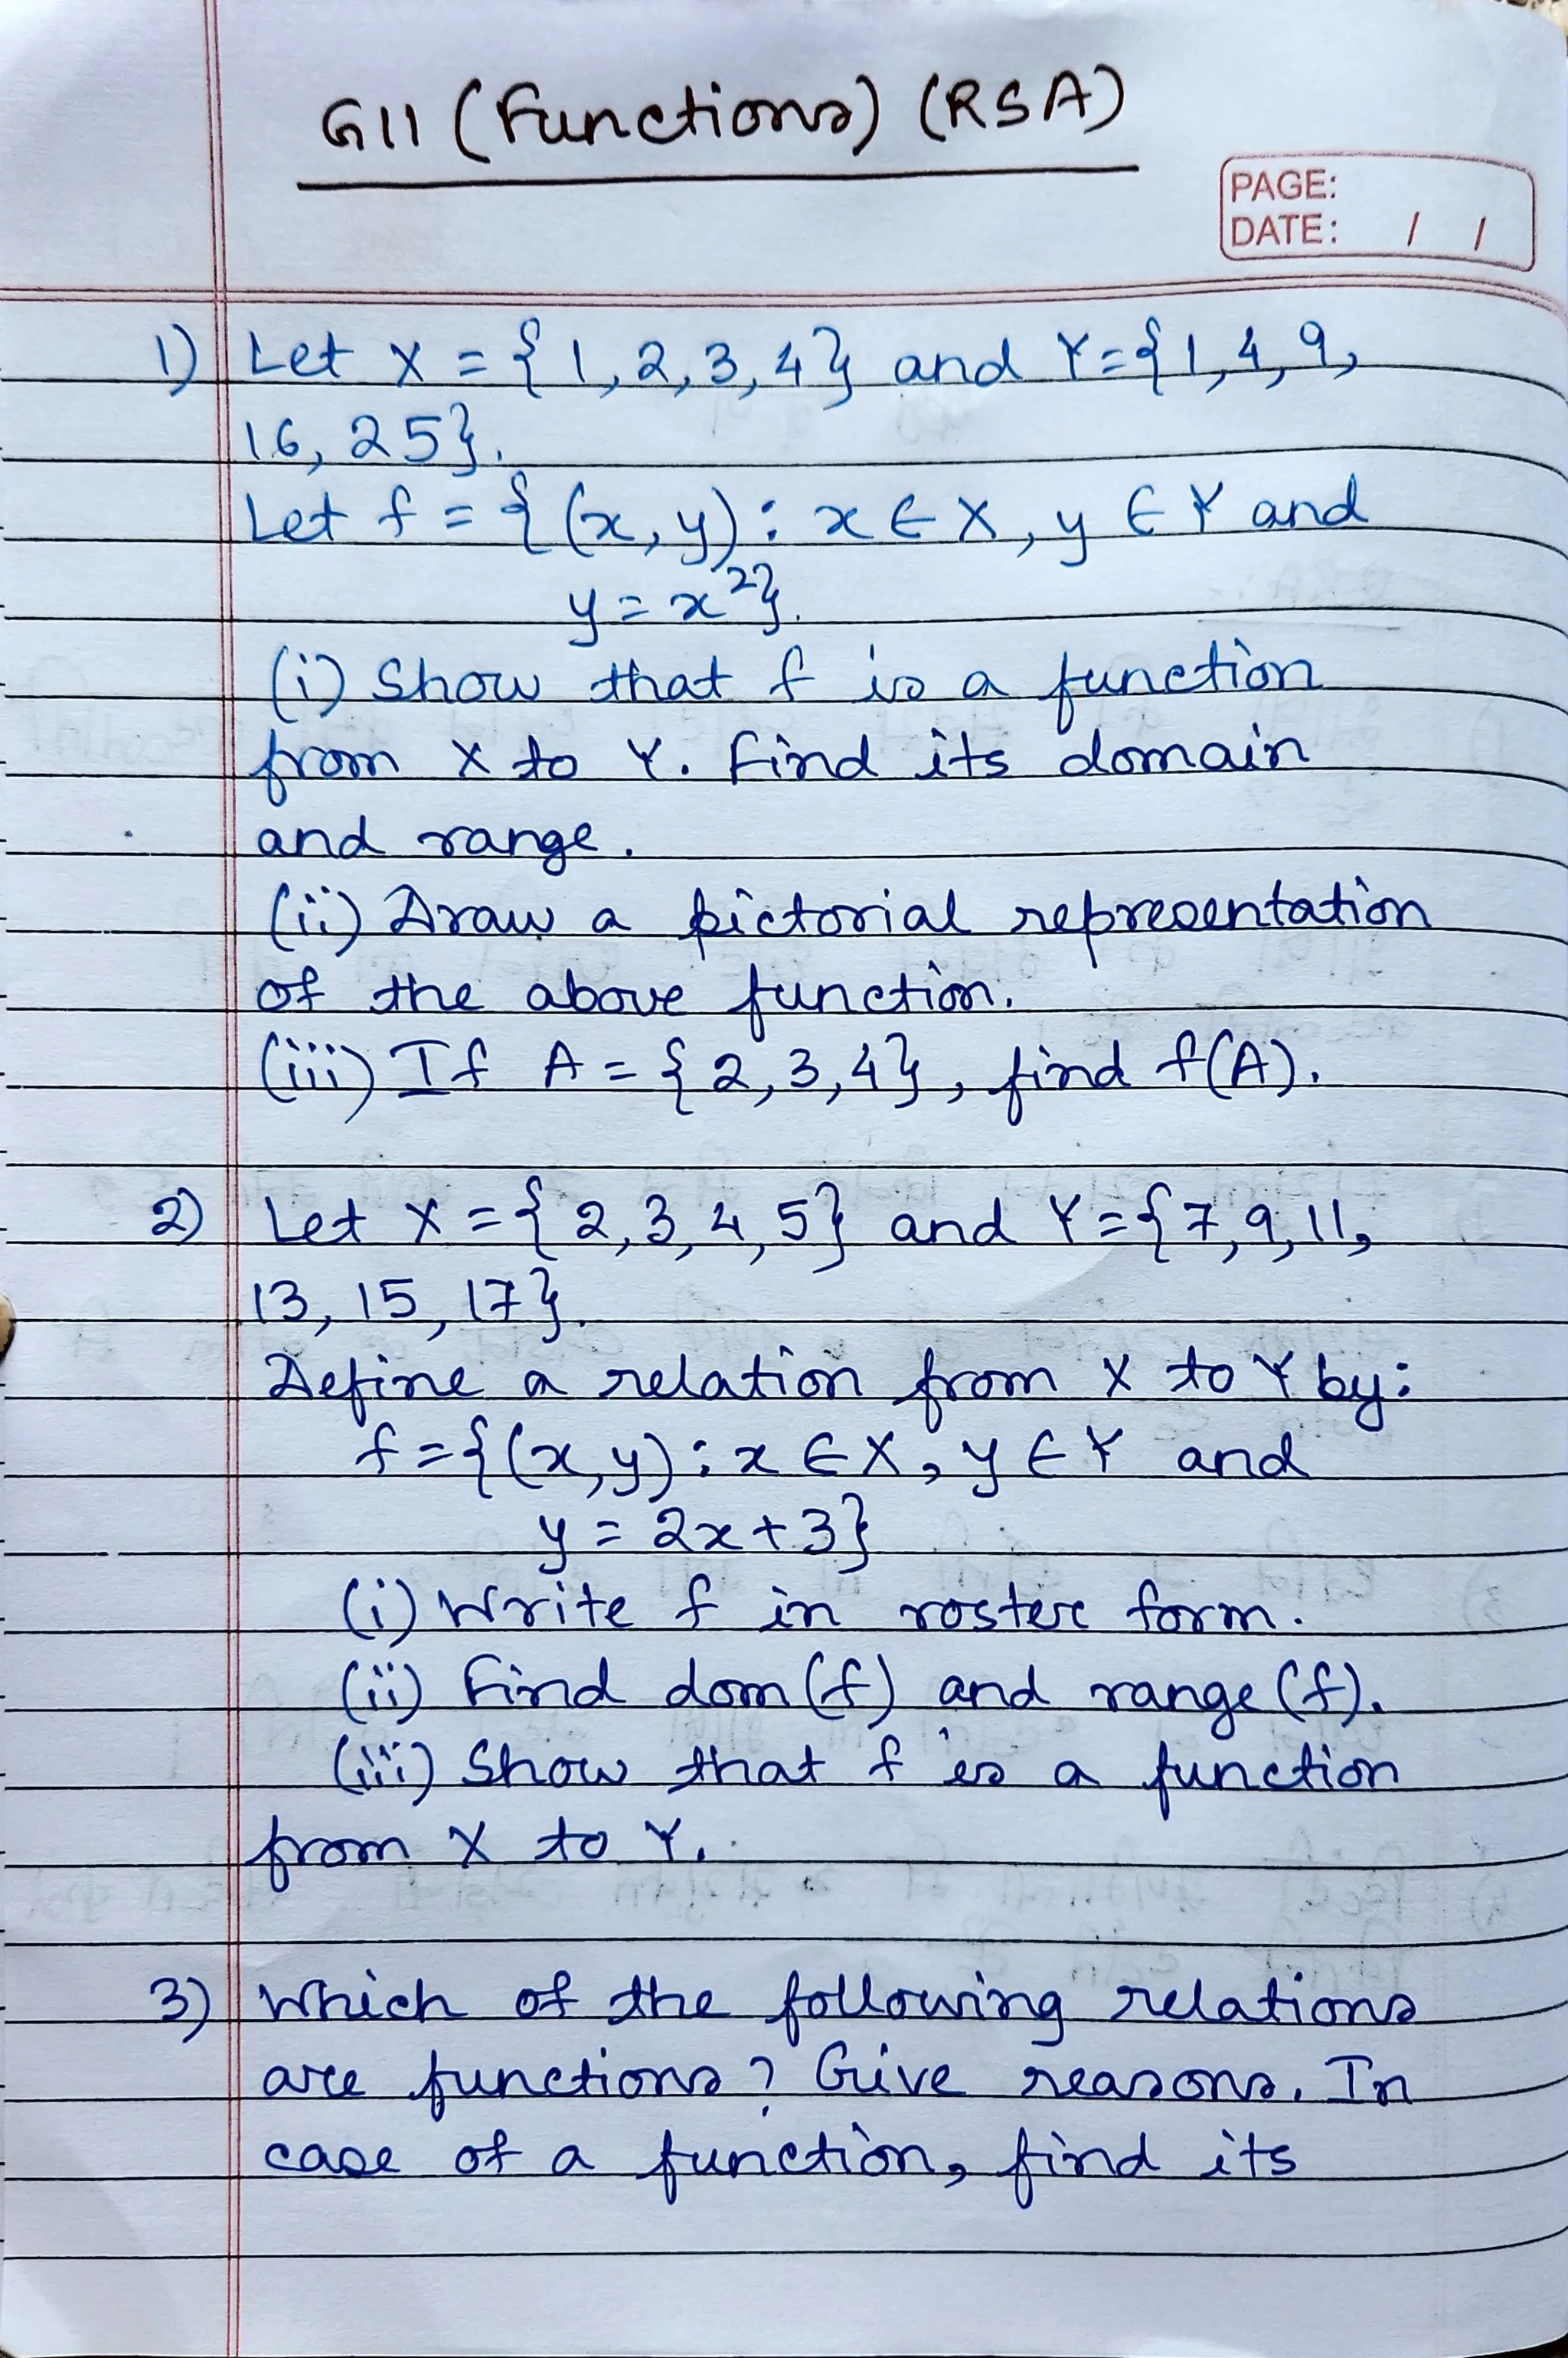 G11 (Functions) (RSA)
PAGE:
DATE: / /
1) Let X = {1, 2, 3, 4} and Y = {1, 4, 9,
16, 25}.
Let f = {(x, y) : x ∈ X, y ∈ Y and
y = x²}.
(i) Show that f is a function
from X to Y. Find its domain
and range.
(ii) Draw a pictorial representation
of the above function.
(iii) If A = {2, 3, 4}, find f(A).
2) Let X = {2, 3, 4, 5} and Y = {7, 9, 11,
13, 15, 17}.
Define a relation from X to Y by:
f = {(x, y) : x ∈ X, y ∈ Y and
y = 2x + 3}
(i) Write f in roster form.
(ii) Find dom (f) and range (f).
(iii) Show that f is a function
from X to Y.
3) Which of the following relations
are functions? Give reasons. In
case of a function, find its